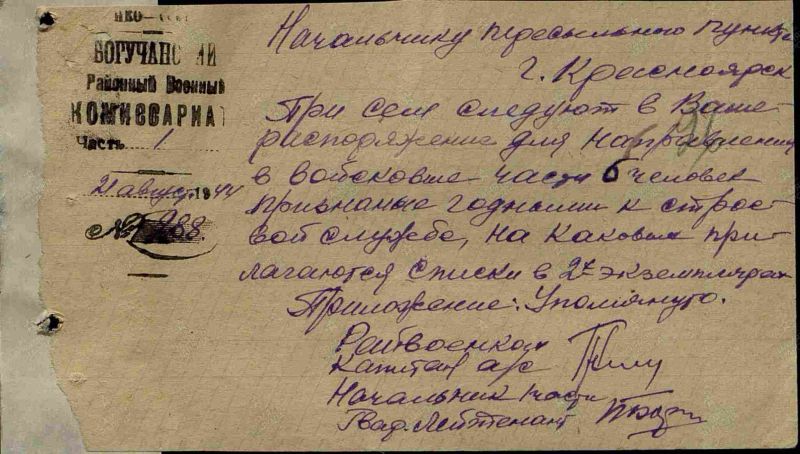 НКО—СССР
БОГУЧАНСКИЙ
Районный Военный
КОМИССАРИАТ
Часть 1
21 август 1944
№ 988.
Начальнику пересыльного пункта
г. Красноярск
При сем следуют в Ваше
распоряжение для направления
в войсковые части 6 человек
признаные годными к строе-
вой службе, на каковых при-
лагаются списки в 2х экземплярах
Приложение: Упомянуто.
Райвоенком
Капитан а/с
Начальник 1 части
Гвар. Лейтенант